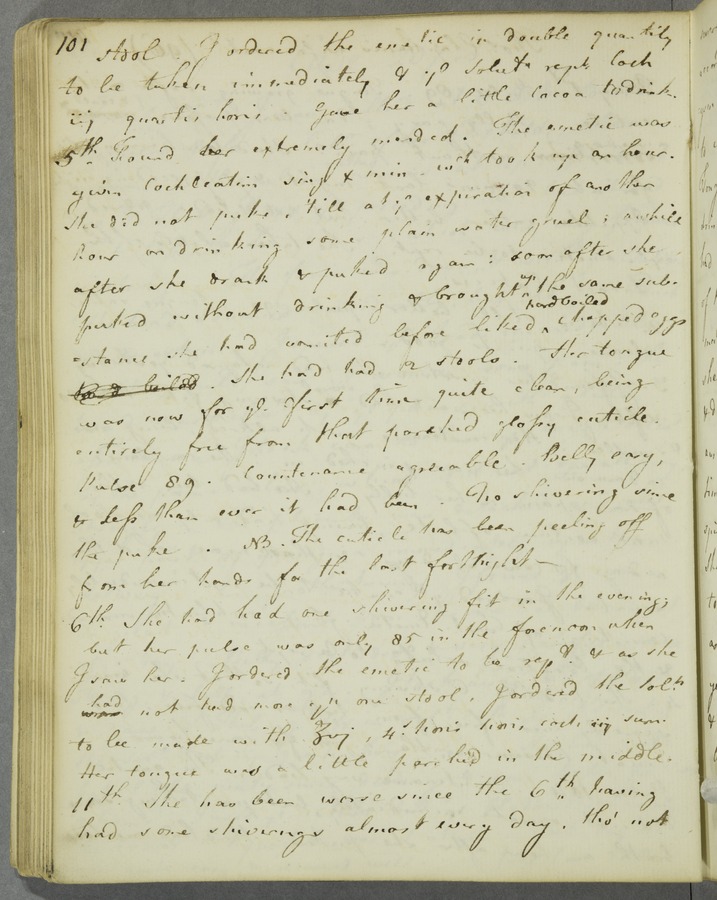 101 stool. I ordered the emetic in double quantity
to be taken immediately & ye solut. rept. Coch
iij quartis horis. Gave her a little Cocoa to drink.
5th. Found her extremely mended. The emetic was
given Cochleatim wch. took up an hour.
She did not puke, 'till at ye expiration of another
hour on drinking some plain water gruel; awhile
after she drank & puked again: soon after she
puked without drinking & brought up the same sub-
=stance she had vomited before liked hard boiled chopped eggs
hard boiled. She had had 12 stools. Her tongue
was now for ye. first time quite clean, being
entirely free from that parched glossy cuticle.
Pulse 89. Countenance agreeable. Belly easy,
& less than ever it had been. No shivering since
the puke. NB. The cuticle has been peeling off
from her hands for the last fortnight —
6th She had had one shivering fit in the evening;
but her pulse was only 85 in the forenoon when
I saw her. I ordered the emetic to be repd. & as she
had not had more yn one stool, I ordered the soln.
to be made with ʒvj, 4s. horis horis coch iij sum.
Her tongue was a little parch'd in the middle.
11th She has been worse since the 6th. having
had some shiverings almost every day, tho' not